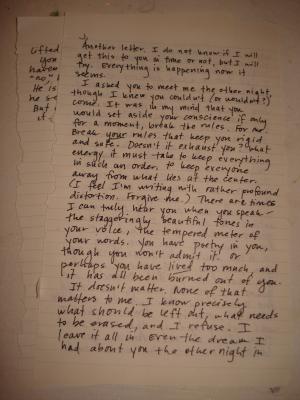 Another letter. I do not know if I will
get this to you in time or not, but I will
try. Everything is happening now it
seems.
I asked you to meet me the other night,
though I knew you couldn't (or wouldn't?)
come. It was in my mind that you
would set aside your conscience if only
for a moment, break the rules. For me.
Break your rules that keep you rigid
and safe. Doesn't it exhaust you? What
energy it must take to keep everything
in such an order, to keep everyone
away from what lies at the center.
(I feel I'm writing with rather profound
distortion. Forgive me.) There are times
I can truly hear you when you speak—
the staggeringly beautiful tones in
your voice, the tempered meter of
your words. You have poetry in you,
though you won't admit it. Or
perhaps you have lived too much, and
it has all been burned out of you.
It doesn't matter. None of that
matters to me. I know precisely
what should be left out, what needs
to be erased, and I refuse. I
leave it all in. Even the dream I
had about you the other night in
lifted
you
haven
"no,"
He is
he so
But
it